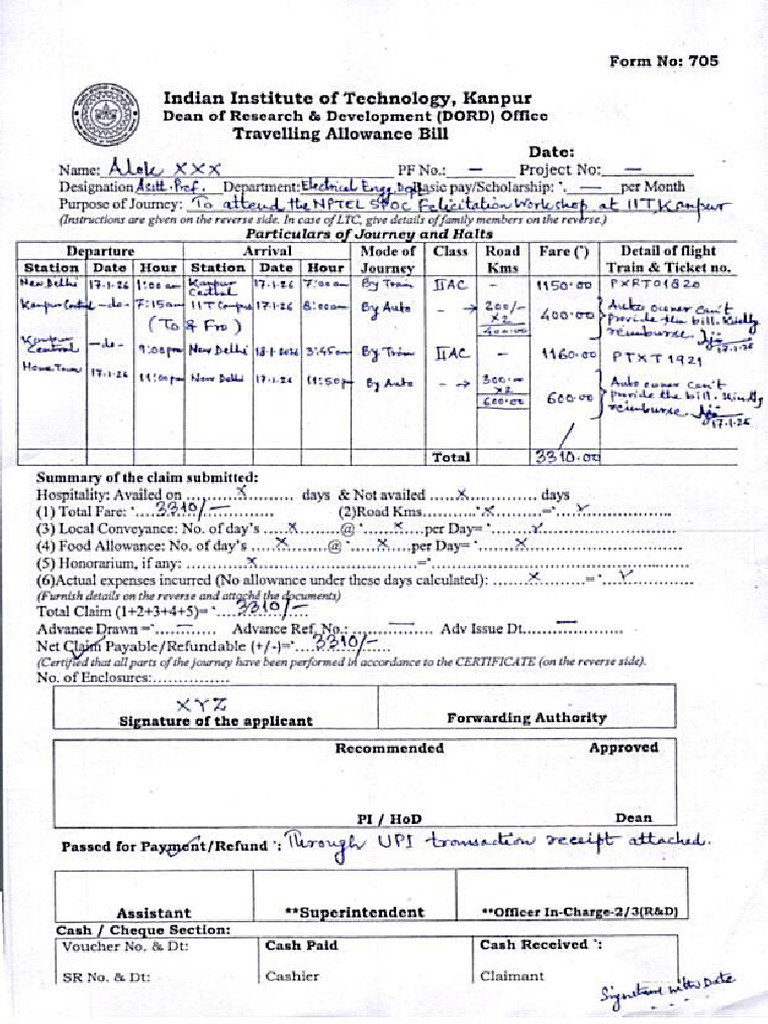 Form No: 705
Indian Institute of Technology, Kanpur
Dean of Research & Development (DORD) Office
Travelling Allowance Bill
Date:
Name: Alok XXX PF No.: — Project No: —
Designation Asstt. Prof. Department: Electrical Engg. Dept Basic pay/Scholarship: `. — per Month
Purpose of Journey: To attend the NPTEL SPOC Felicitation Workshop at IIT, Kanpur
(Instructions are given on the reverse side. In case of LTC, give details of family members on the reverse.)
Particulars of Journey and Halts
Departure Arrival Mode of Journey Class Road Kms Fare (`) Detail of flight Train & Ticket no.
Station Date Hour Station Date Hour
New Delhi 17.1.26 1:00 am Kanpur Central 17.1.26 7:00 am By Train IIAC - 1150.00 PXRT01820
Kanpur Central -do- 7:15 am IIT Campus 17.1.26 8:00 am By Auto - → 200/- X2 400.00 400.00 Auto owner can't provide the bill. Kindly reimburse. 17.1.26
(To & Fro)
Kanpur Central -do- 9:00 pm New Delhi 18.1.2026 3:45 am By Train IIAC - 1160.00 PTXT 1921
Home Town 17.1.26 11:00 pm New Delhi 17.1.26 11:50 p By Auto - → 300.00 X2 600.00 600.00 Auto owner can't provide the bill. Kindly reimburse. 17.1.26
Total 3310.00
Summary of the claim submitted:
Hospitality: Availed on ........X........ days & Not availed ......X......... days
(1) Total Fare: `....3310/-........... (2)Road Kms..........`.X........=`....✓....................
(3) Local Conveyance: No. of day's .....X......@ `.....X.....per Day= `........✓...................
(4) Food Allowance: No. of day's ....X.......@ `.....X....per Day= `......X....................
(5) Honorarium, if any: ...........X...............................=`...................................
(6)Actual expenses incurred (No allowance under these days calculated): ......X.......=`...✓.............
(Furnish details on the reverse and attache the documents)
Total Claim (1+2+3+4+5)= `....3310/-......
Advance Drawn =`....—..... Advance Ref. No.: .......—....... Adv Issue Dt......—..............
Net Claim Payable/Refundable (+/-)=`....3310/-....
(Certified that all parts of the journey have been performed in accordance to the CERTIFICATE (on the reverse side).
No. of Enclosures:...............
XYZ
Signature of the applicant Forwarding Authority
Recommended Approved
PI / HoD Dean
Passed for Payment/Refund `: Through UPI transaction receipt attached.
Assistant **Superintendent **Officer In-Charge-2/3(R&D)
Cash / Cheque Section:
Voucher No. & Dt: Cash Paid Cash Received `:
SR No. & Dt: Cashier Claimant
Signature with Date